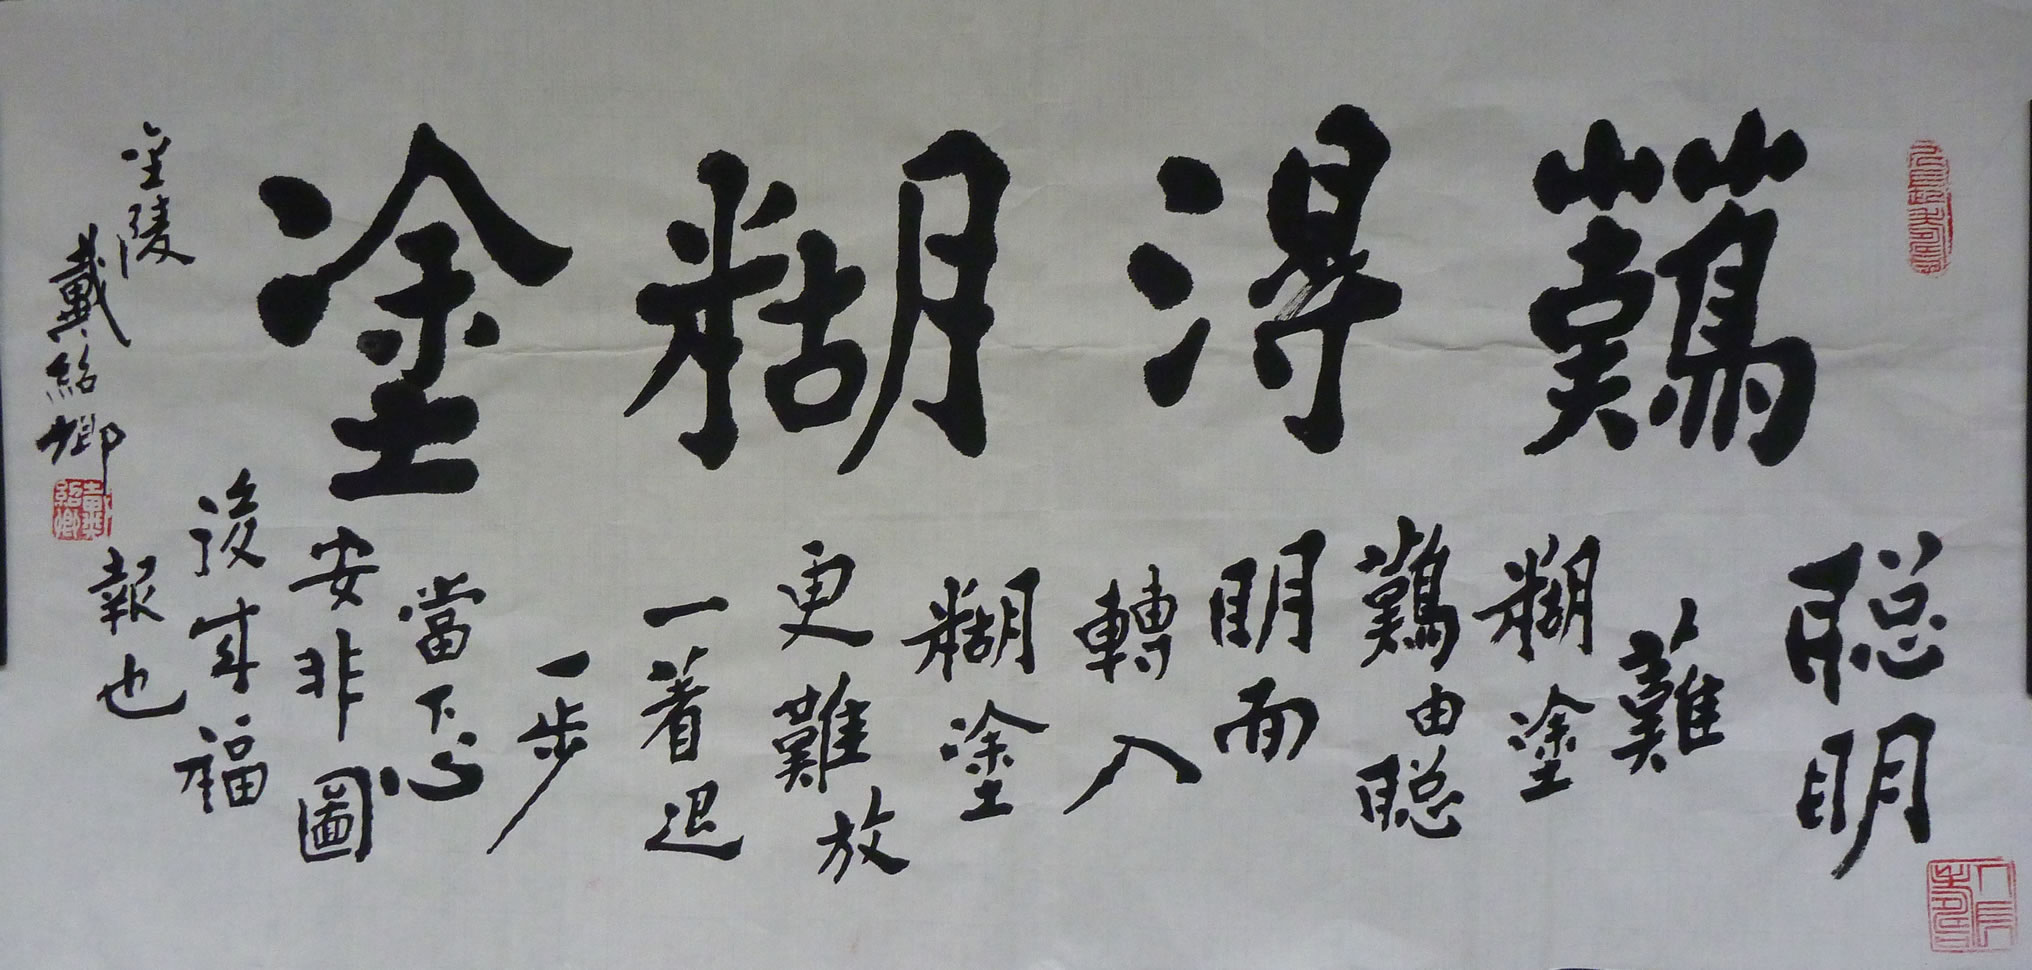 難得糊塗
聰明
難
糊塗
難由聰
明而
轉入
糊塗
更難放
一着退
一步
當下心
安非圖
後來福
報也
金陵
戴紹卿
戴紹卿